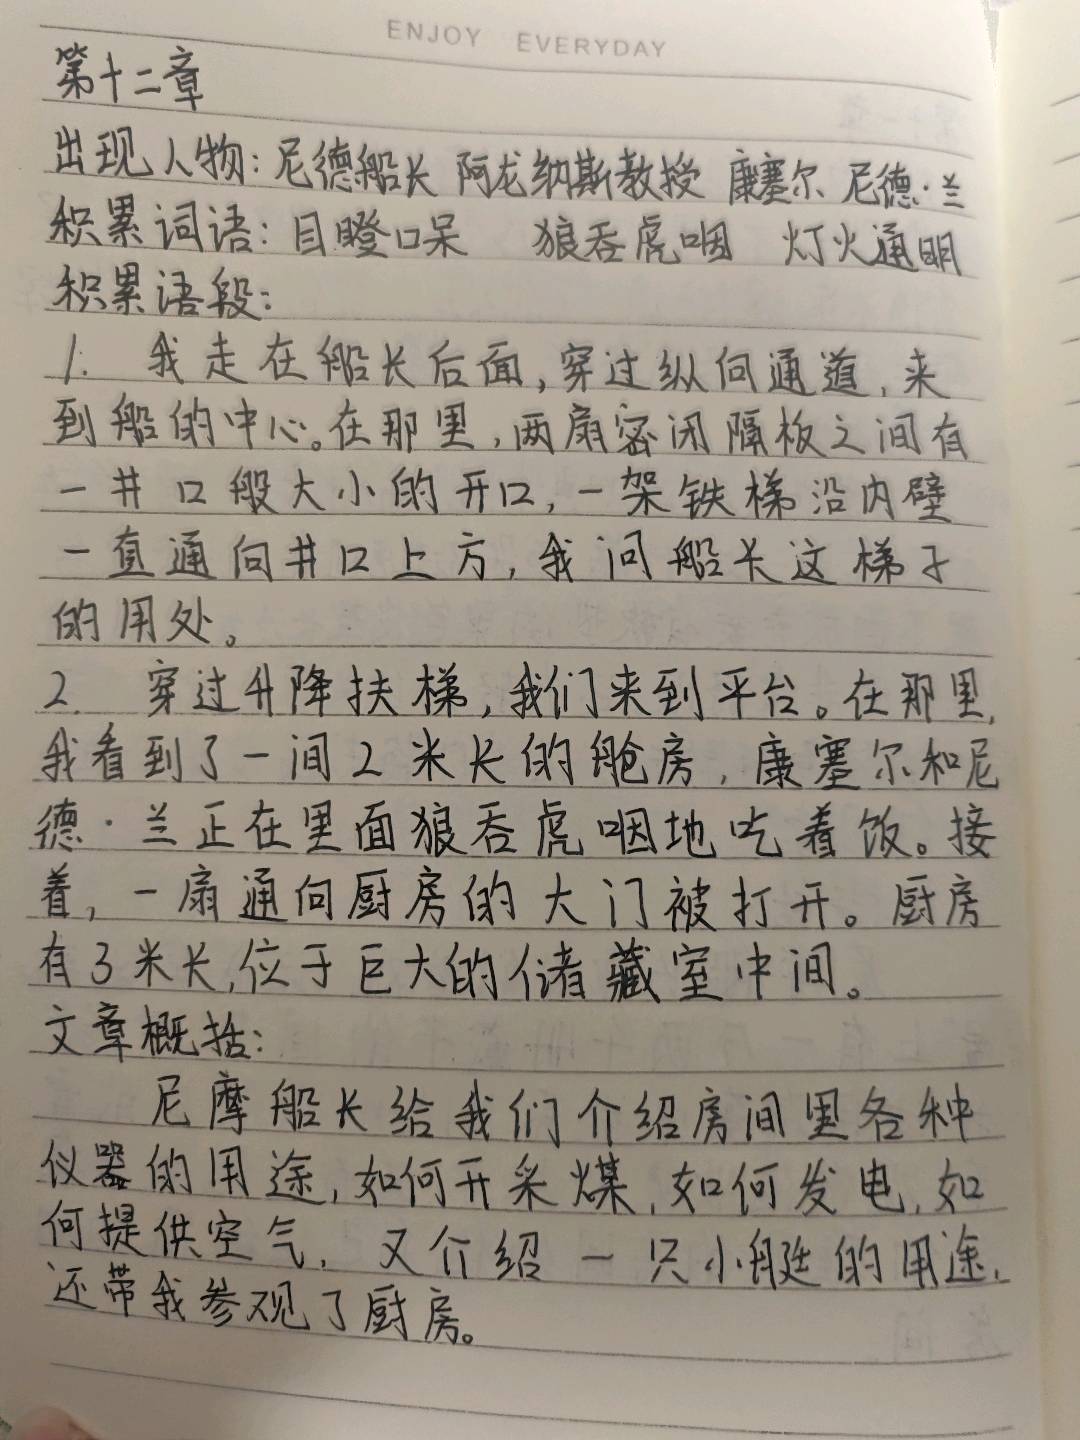 ENJOY EVERYDAY
第十二章
出现人物：尼德船长 阿龙纳斯教授 康塞尔 尼德·兰
积累词语：目瞪口呆 狼吞虎咽 灯火通明
积累语段：
1. 我走在船长后面，穿过纵向通道，来
到船的中心。在那里，两扇密闭隔板之间有
一井口般大小的开口，一架铁梯沿内壁
一直通向井口上方，我问船长这梯子
的用处。
2. 穿过升降扶梯，我们来到平台。在那里，
我看到了一间2米长的舱房，康塞尔和尼
德·兰正在里面狼吞虎咽地吃着饭。接
着，一扇通向厨房的大门被打开。厨房
有3米长，位于巨大的储藏室中间。
文章概括：
尼摩船长给我们介绍房间里各种
仪器的用途，如何开采煤，如何发电，如
何提供空气，又介绍一只小艇的用途，
还带我参观了厨房。